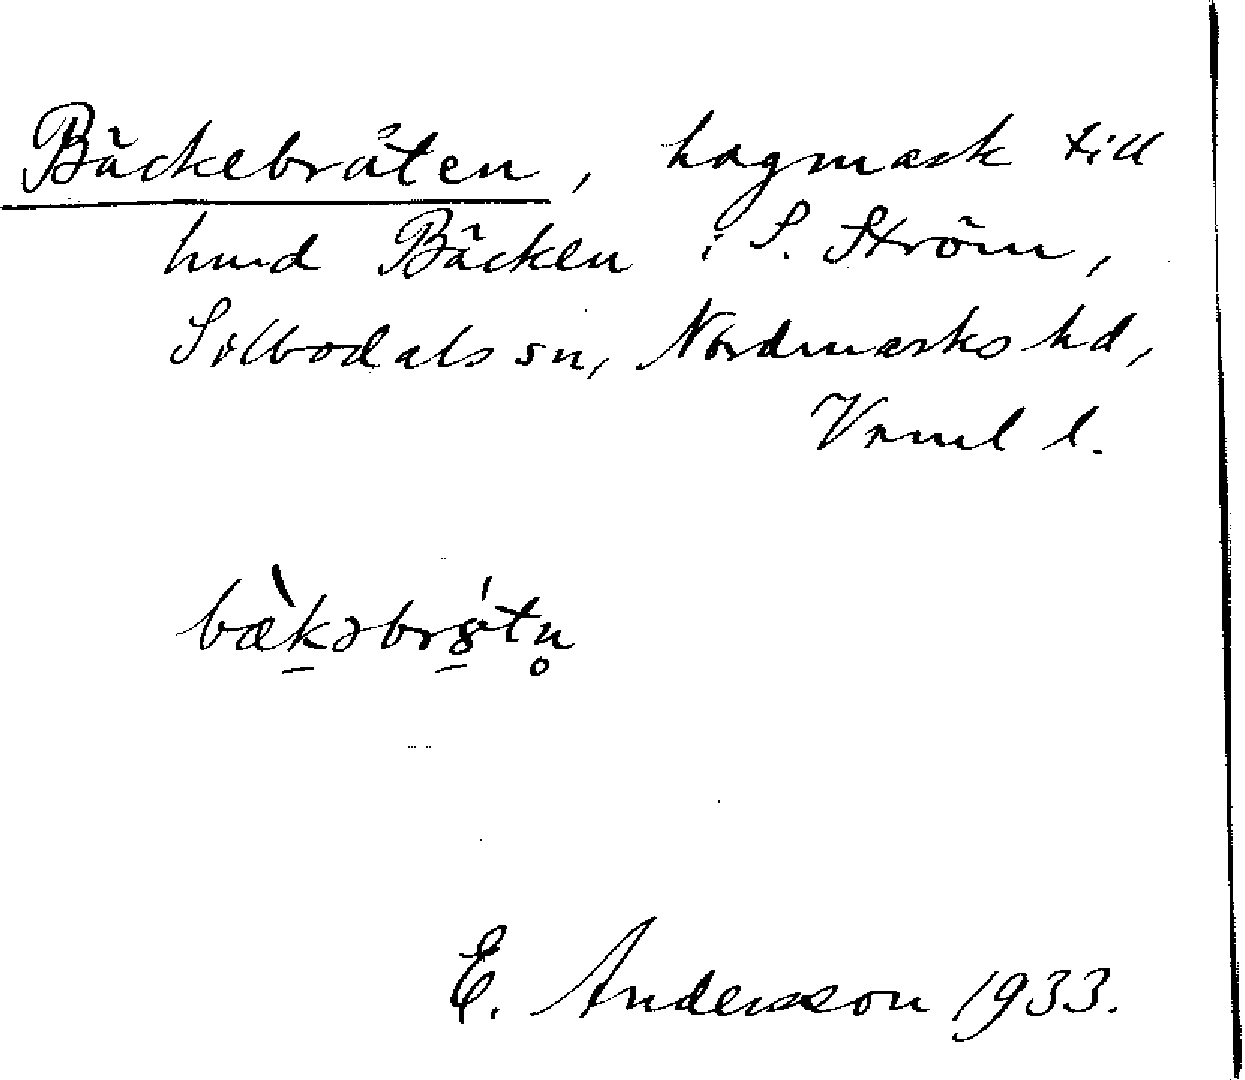 Bäckebråten, hagmark till
hmd Bäcken i S. Ström,
Silbodals sn, Nordmarks hd,
Vrml l.
bæ̀k̠əbrs̠̍tn̥
E. Andersson 1933.